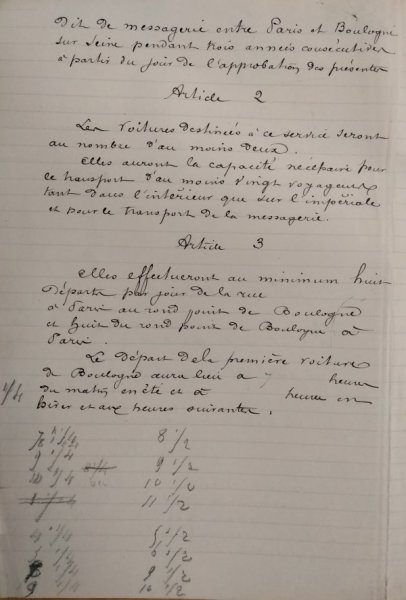 Dit de messagerie entre Paris et Boulogne
sur Seine pendant trois années consécutives
à partir du jour de l'approbation des présentes
Article 2
Les Voitures destinées à ce service seront
au nombre d'au moins deux.
Elles auront la capacité nécessaire pour
le transport d'au moins vingt voyageurs
tant dans l'intérieur que sur l'impériale
et pour le transport de la messagerie.
Article 3
Elles effectueront au minimum huit
Départs par jour de la rue
à Paris au rond point de Boulogne
et huit du rond point de Boulogne à
Paris.
Le Départ de la première voiture
de Boulogne aura lieu à 7 heures
du matin en été et à heures en
hiver et aux heures suivantes.
1/4
7 1/4 8 1/2
9 1/4 9 1/2
10 1/4 10 1/2
1 1/4 11 1/2
4 1/4 5 1/2
1/4 6 1/2
8 1/4 9 1/2
9 10 1/2